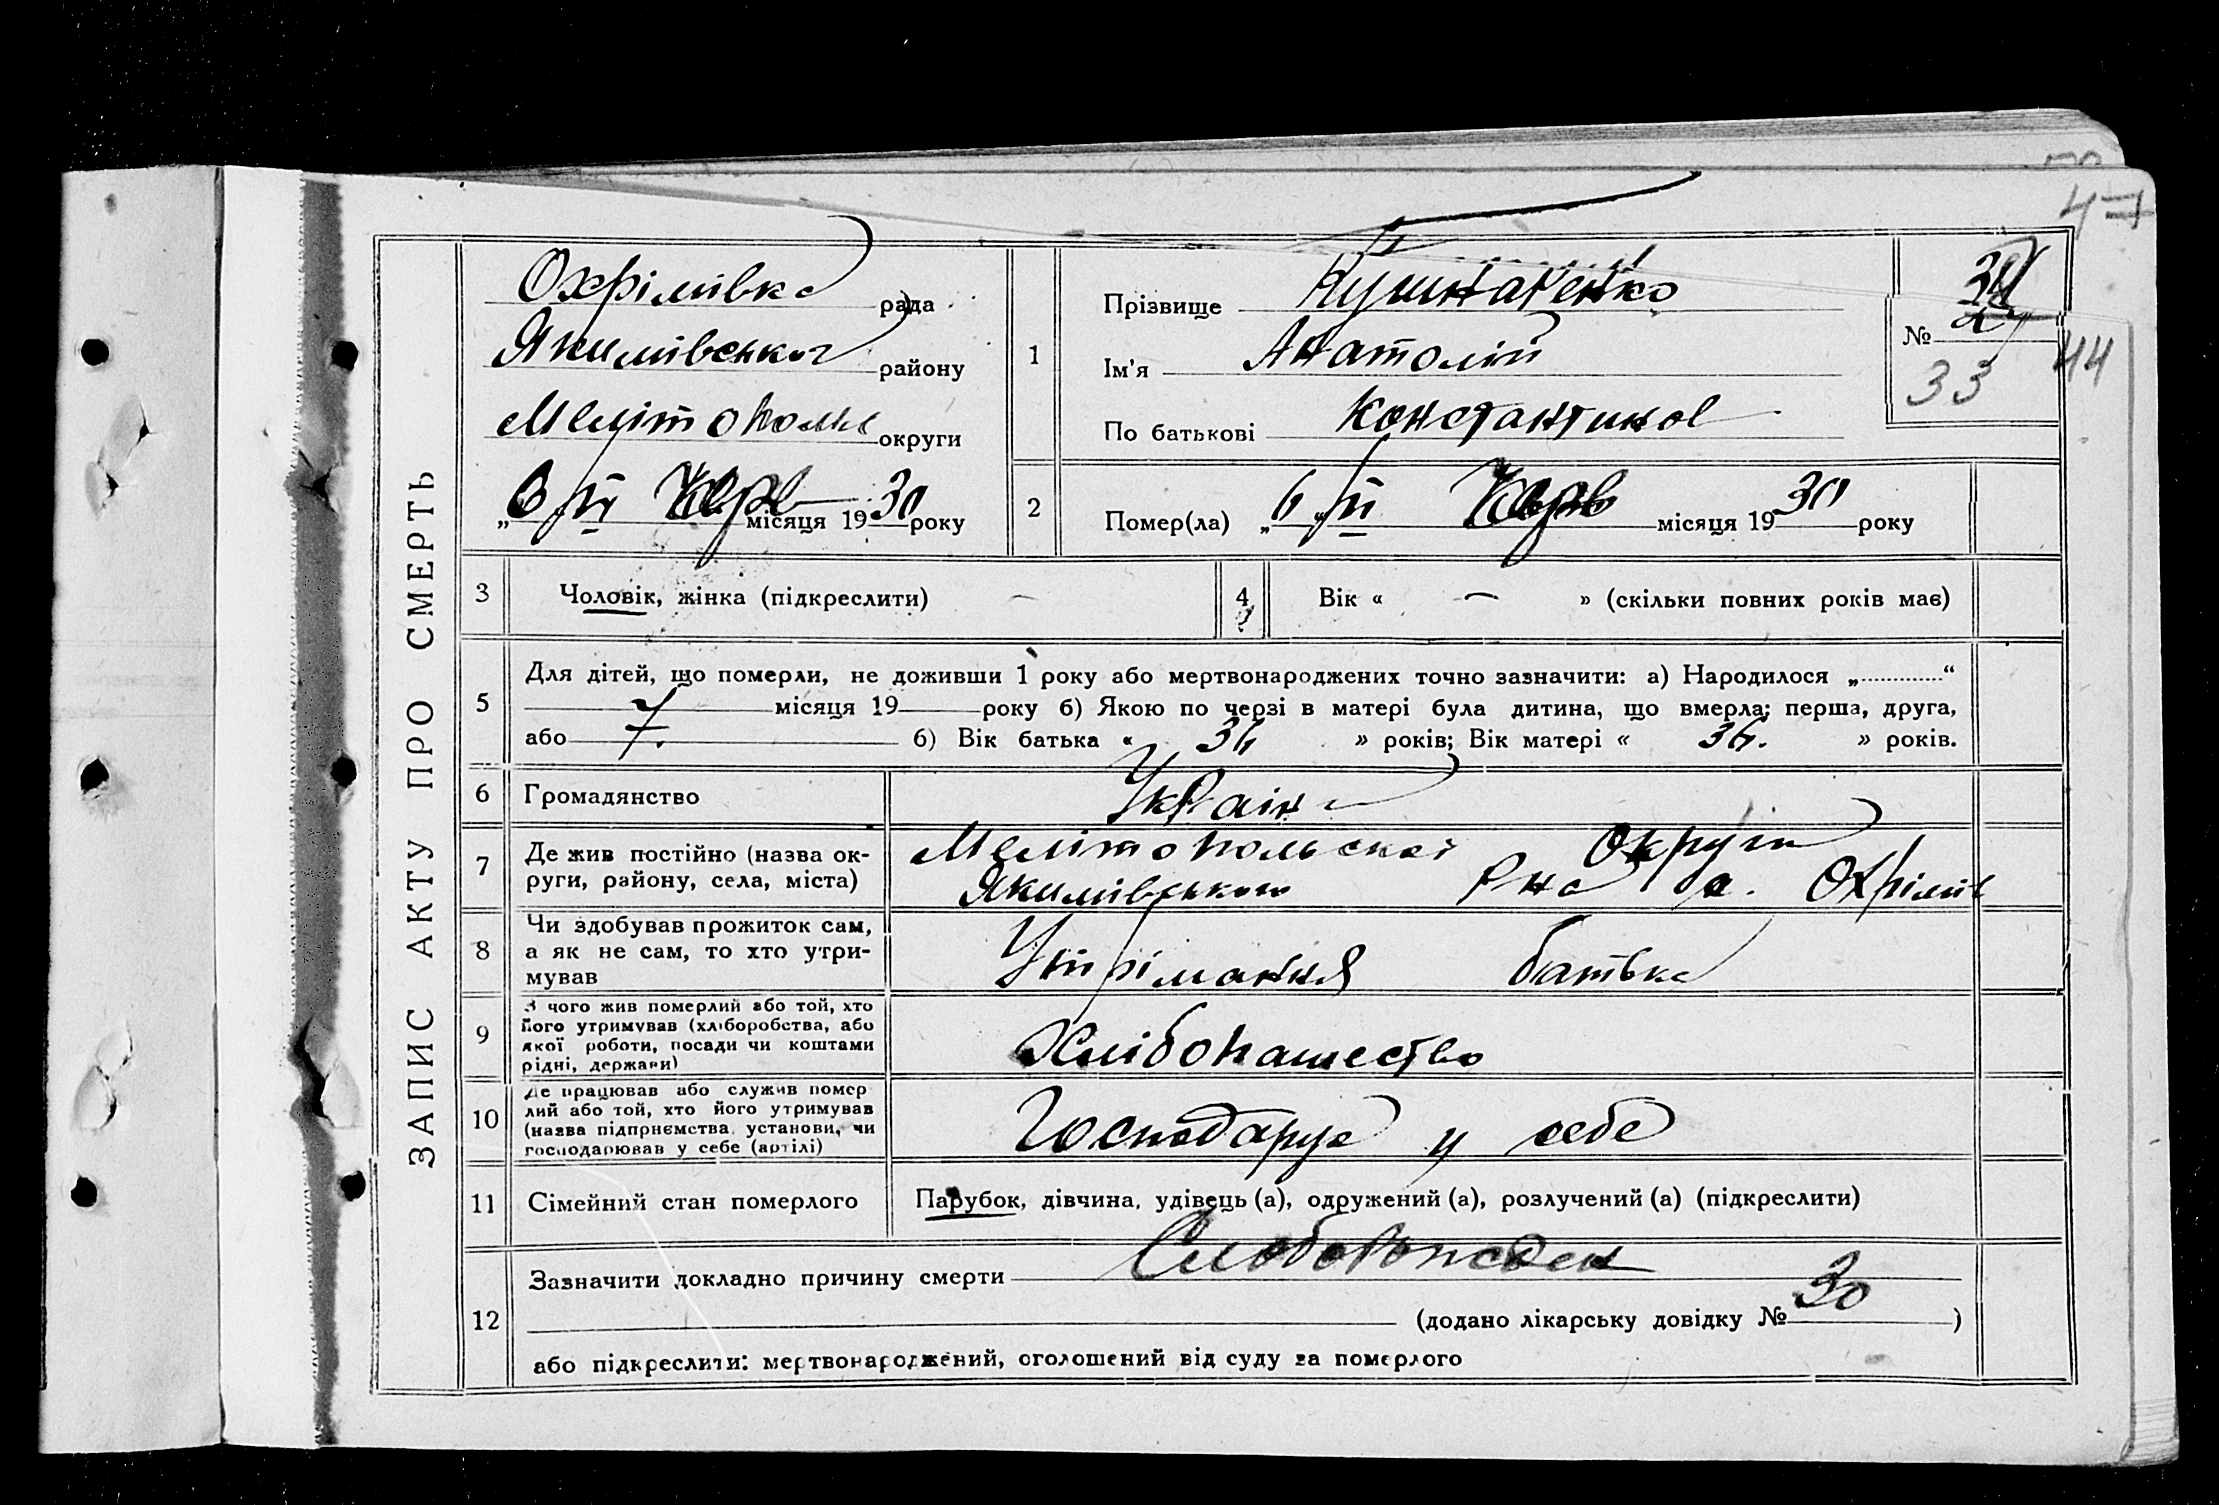 47
ЗАПИС АКТУ ПРО СМЕРТЬ
Охрімівка рада
Якимівського району
Мелітополь округи
„6/VI місяця 1930 року
1
Прізвище Кушнаренко
Ім'я Анатолій
По батькові Константинов
№
33
44
2
Помер(ла) „6/VI місяця 1930 року
3 Чоловік, жінка (підкреслити) —
4 Вік « — » (скільки повних років має)
5 Для дітей, що померли, не доживши 1 року або мертвонароджених точно зазначити: а) Народилося „ “
місяця 19 року б) Якою по черзі в матері була дитина, що вмерла: перша, друга,
або 7. б) Вік батька « 36 » років; Вік матері « 36. » років.
6 Громадянство Україн
7 Де жив постійно (назва ок-
руги, району, села, міста)
Мелітопольської Округи
Якимівського Рна с. Охрімів
8 Чи здобував прожиток сам,
а як не сам, то хто утри-
мував
Утрімання батька
9 З чого жив померлий або той, хто
його утримував (хліборобства, або
якої роботи, посади чи коштами
рідні, держави)
Хлібопашество
10 Де працював або служив помер
лий або той, хто його утримував
(назва підприємства, установи, чи
господарював у себе (артілі)
Господарує у себе
11 Сімейний стан померлого Парубок, дівчина, удівець (а), одружений (а), розлучений (а) (підкреслити)
12 Зазначити докладно причину смерти
(додано лікарську довідку № 30 )
або підкреслити: мертвонароджений, оголошений від суду за померлого